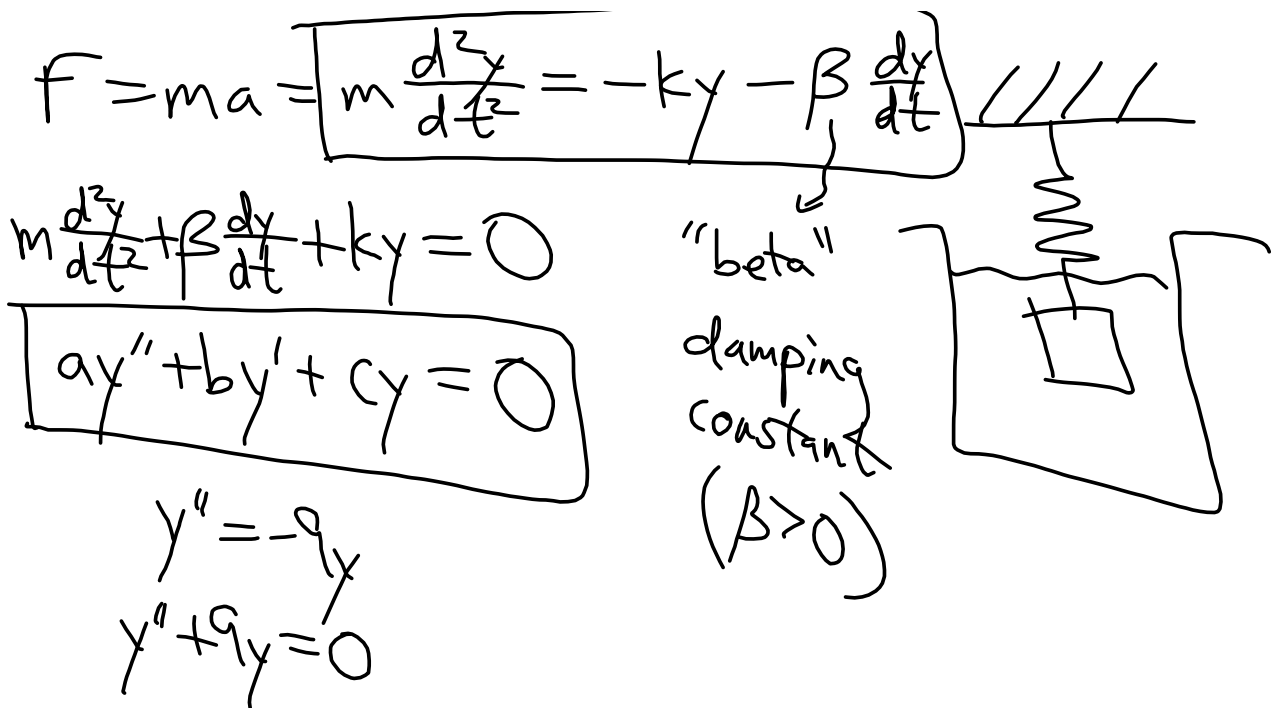 F = ma = m d²y/dt² = -ky - β dy/dt
m d²y/dt² + β dy/dt + ky = 0
ay'' + by' + cy = 0
y'' = -9y
y'' + 9y = 0
"beta"
damping
constant
(β > 0)